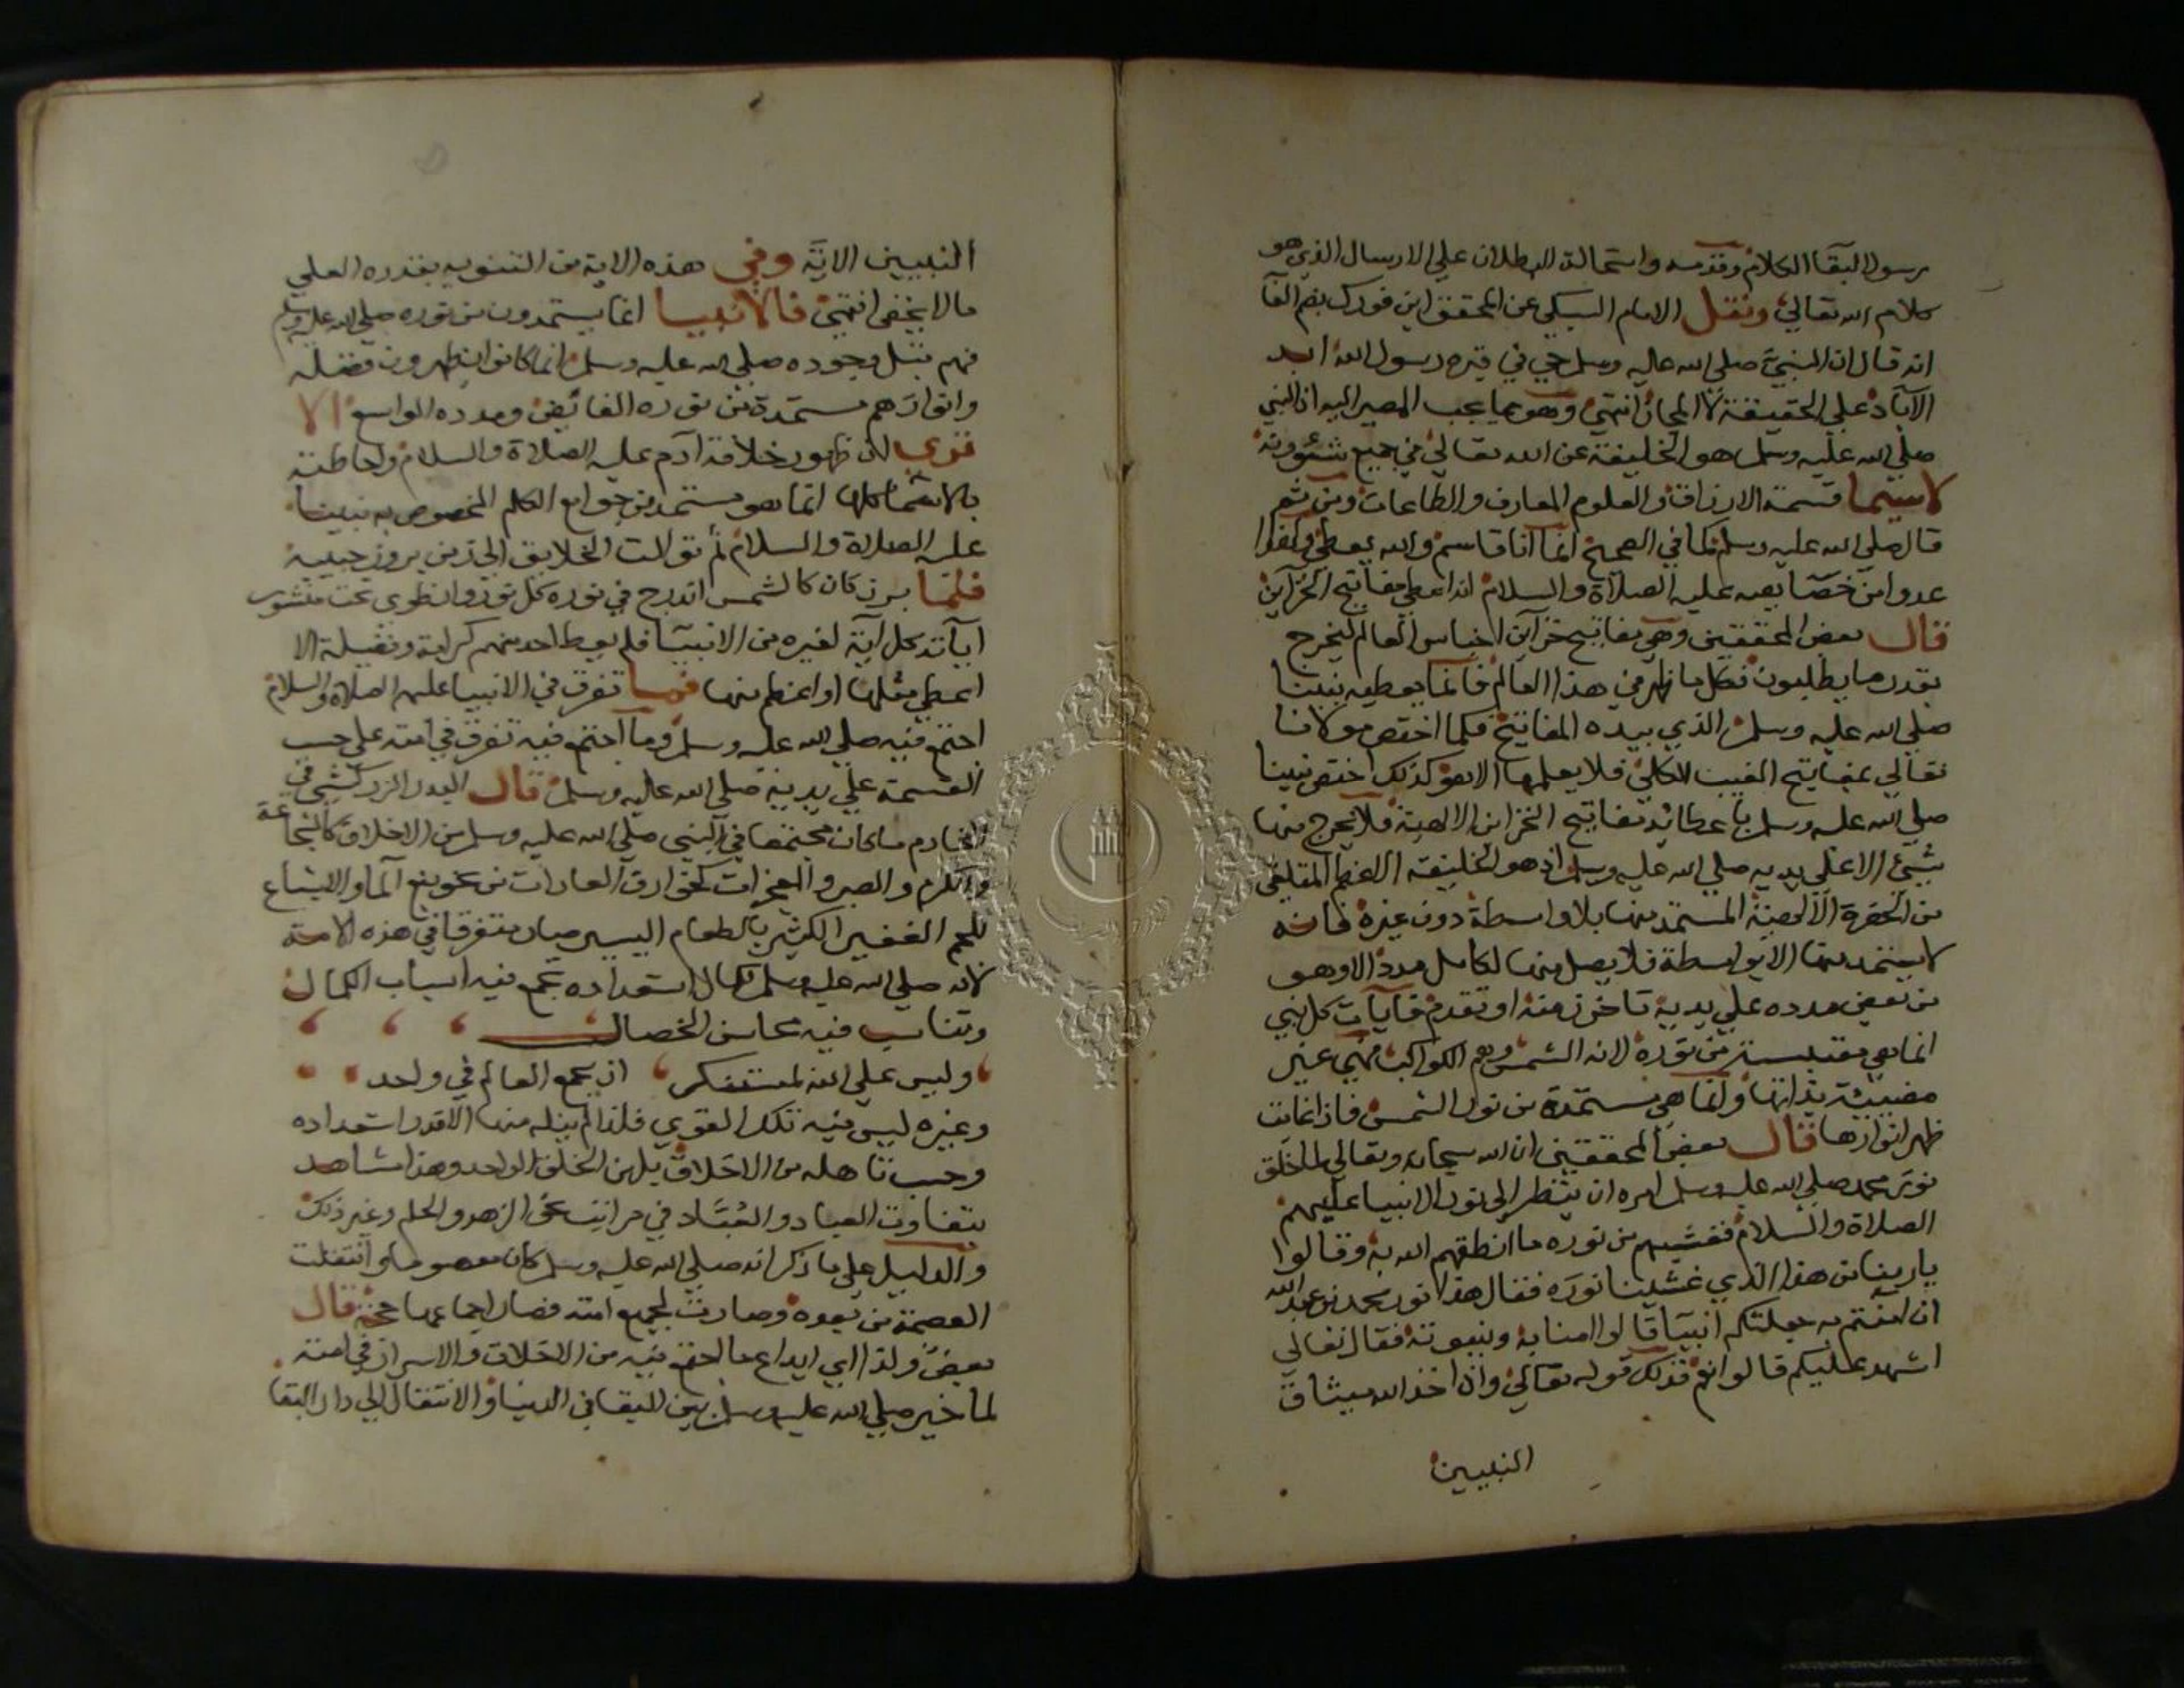 رسول البقا الكلام وقدمه واستحالة البطلان علي الارسال الذي هو
كلام الله تعالي ونقل الامام السبكي عن المحقق ابن فورك بضم الفآ
انه قال ان النبي صلي الله عليه وسلم حي في قبره رسول الله ابد
الآباد علي الحقيقة لا المجاز انتهي وهو مما يجب المصير اليه اذ النبي
صلي الله عليه وسلم هو الخليفة عن الله تعالي في جميع شئونه
لاسيما قسمة الارزاق والعلوم المعارف والطاعات ومن ثم
قال صلي الله عليه وسلم كما في الصحيح انما انا قاسم والله يعطي ولهذا
عدوا من خصايصه عليه الصلاة والسلام انه اعطي مفاتيح الخزآين
قال بعض المحققين وهي مفاتيح خزآين اجناس العالم ليخرج
بقدر ما يطلبون فكل ما ظهر في هذا العالم فانما يعطيه نبينا
صلي الله عليه وسلم الذي بيده المفاتيح فكما اختص مولانا
تعالي بمفاتيح الغيب الكلي فلا يعلمها الا هو كذلك اختص نبينا
صلي الله عليه وسلم باعطائه مفاتيح الخزاين الالهية فلا يخرج منها
شيئ الا علي يديه صلي الله عليه وسلم اذ هو الخليفة الاعظم المتلقي
من الحضرة الآلهية المستمد منها بلا واسطة دون غيره فانه
لا يستمد منها الا بواسطة فلا يصل منها لكامل مدد الا وهو
من بعض مدده علي يديه تاخر زمنه او تقدم فآيات كل نبي
انما هي مقتبسة من نوره لانه الشمس وهم الكواكب فهي غير
مضيئة بذاتها وانما هي مستمدة من نور الشمس فاذا غابت
ظهر انوارها قال بعض المحققين ان الله سبحانه وتعالي لما خلق
نور محمد صلي الله عليه وسلم امره ان ينظر الي نور الانبيا عليهم
الصلاة والسلام فغشيهم من نوره ما انطقهم الله به وقالوا
يا ربنا من هذا الذي غشينا نوره فقال هذا نور محمد بن عبد الله
ان امنتم به جعلتكم انبيآ قالوا امنا به وبنبوته فقال تعالي
اشهد عليكم قالوا نعم فذلك قوله تعالي واذ اخذ الله ميثاق
النبيين
النبيين الاية وفي هذه الاية من التنويه بقدره العلي
مالا يخفي انتهي فالانبيا انما يستمدون من نوره صلي الله عليه وسلم
فهم قبل وجوده صلي الله عليه وسلم انما كانوا يظهرون فضله
وانوارهم مستمدة من نوره الفائض ومدده الواسع الا
تري ان ظهور خلافة آدم عليه الصلاة والسلام واحاطته
بالاسما كلها انما هو مستمد من جوامع الكلم المخصوص به نبينا
عليه الصلاة والسلام ثم توالت الخلايق الي زمن بروز جسمه
فلما برز كان كالشمس اندرج في نوره كل نور وانطوي تحت منشور
آياته كل آية لغيره من الانبيآ فلم يعط احد منهم كرامة وفضيلة الا
اعطي مثلها او اعظم منها فما تفرق في الانبيا عليهم الصلاة والسلام
اجتمع فيه صلي الله عليه وسلم وما اجتمع فيه تفرق في امته علي حسب
القسمة علي يديه صلي الله عليه وسلم قال البدر الزركشي في
الخادم ما كان مجتمعا في النبي صلي الله عليه وسلم من الاخلاق كالشجاعة
والكرم والصبر والمعجزات كخوارق العادات من نحو نبع الما والاشباع
للجم الغفير الكثير بالطعام اليسير صار متفرقا في هذه الامة
لانه صلي الله عليه وسلم لكمال استعداده تجمع فيه اسباب الكمال
وتناسب فيه محاسن الخصال
وليس علي الله بمستنكر ان يجمع العالم في واحد
وغيره ليس فيه تلك القوي فلذا لم ينله منها الا قدر استعداده
وحسب تاهله من الاخلاق بل من الخلق الواحد وهذا مشاهد
بتفاوت العباد والعُبَّاد في مراتب نحو الزهد والحلم وغير ذلك
والدليل علي ما ذكر انه صلي الله عليه وسلم كان معصوما وانتقلت
العصمة من بعده وصارت لجميع امته فصار اجماعها حجة قال
بعض ولذا اي ايداع ما اجتمع فيه من الاخلاق والاسرار في امته
لما خير صلي الله عليه وسلم بين البقا في الدنيا والانتقال الي دار البقا